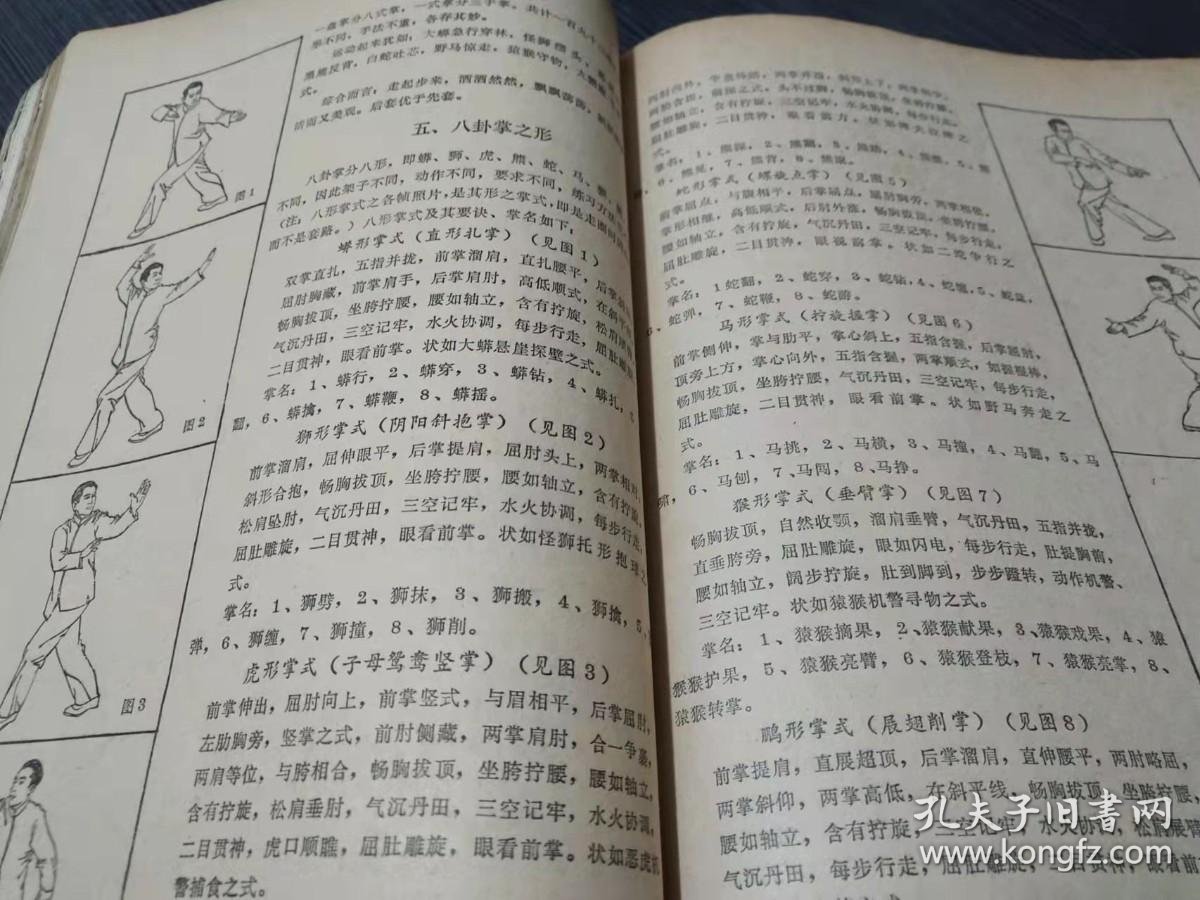 一盘掌分八式掌，一式掌分三手掌。共计一百九十
形不同，手法不重，各存其妙。
运动起来犹如：大蟒急行穿林，怪狮摆头，
黑熊反背，白蛇吐芯，野马惊走，猿猴守物，大鹏
式。
综合而言：走起步来，洒洒然然，飘飘荡荡，
活而又美观。后套优于先套。
五、八卦掌之形
八卦掌分八形，即蟒、狮、虎、熊、蛇、马、猴、
不同，因此架子不同，动作不同，要求不同，练习方法
（注：八形掌式之各帧照片，是其形之掌式，即是走圈时的
而不是套路。）八形掌式及其要诀、掌名如下：
蟒形掌式（直形扎掌）（见图1）
双掌直扎，五指并拢，前掌溜肩，直扎腰平，后掌斜
屈肘胸藏，前掌肩手，后掌肩肘，高低顺式，在斜平
畅胸拔顶，坐胯拧腰，腰如轴立，含有拧旋，松肩
气沉丹田，三空记牢，水火协调，每步行走，屈肚雕旋
二目贯神，眼看前掌。状如大蟒悬崖探壁之式。
掌名：1、蟒行，2、蟒穿，3、蟒钻，4、蟒扎，5
翻，6、蟒擒，7、蟒鞭，8、蟒摇。
狮形掌式（阴阳斜抱掌）（见图2）
前掌溜肩，屈伸眼平，后掌提肩，屈肘头上，两掌相对，
斜形合抱，畅胸拔顶，坐胯拧腰，腰如轴立，含有拧旋，
松肩坠肘，气沉丹田，三空记牢，水火协调，每步行走，
屈肚雕旋，二目贯神，眼看前掌。状如怪狮托形抱球之
式。
掌名：1、狮劈，2、狮抹，3、狮搬，4、狮擒，5、
弹，6、狮缠，7、狮撞，8、狮削。
虎形掌式（子母鸳鸯竖掌）（见图3）
前掌伸出，屈肘向上，前掌竖式，与眉相平，后掌屈肘，
左肋胸旁，竖掌之式，前肘侧藏，两掌肩肘，合一争裹，
两肩等位，与胯相合，畅胸拔顶，坐胯拧腰，腰如轴立，
含有拧旋，松肩垂肘，气沉丹田，三空记牢，水火协调，
二目贯神，虎口顺瞧，屈肚雕旋，眼看前掌。状如恶虎机
警捕食之式。
图1
图2
图3
腰如轴立，含有拧旋，三空记牢，水火协调，
屈肚雕旋，二目贯神，眼看前方。
掌名：1、熊探，2、熊翻，3、熊
6、熊晃，7、熊背，8、熊旋。
蛇形掌式（螺旋点掌）（见图5）
前掌屈点，与腹相平，后掌屈点，屈肘胸旁，两掌相抵，
掌形相继，高低顺式，后肘外涨，畅胸拔顶，坐胯拧腰，
腰如轴立，含有拧旋，气沉丹田，三空记牢，每步行走，
屈肚雕旋，二目贯神，眼视前掌。状如二蛇争行之
式。
掌名：1蛇翻，2、蛇穿，3、蛇钻，4、蛇缠，5、蛇盘，
6、蛇弹，7、蛇鞭，8、蛇游。
马形掌式（拧旋握掌）（见图6）
前掌侧伸，掌与肋平，掌心斜上，五指含握，后掌屈肘，
顶旁上方，掌心向外，五指含握，两掌顺式，如握棍棒，
畅胸拔顶，坐胯拧腰，气沉丹田，三空记牢，每步行走，
屈肚雕旋，二目贯神，眼看前掌。状如野马奔走之
式。
掌名：1、马挑，2、马横，3、马撞，4、马翻，5、马
6、马刨，7、马闯，8、马挣。
猴形掌式（垂臂掌）（见图7）
畅胸拔顶，自然收颚，溜肩垂臂，气沉丹田，五指并拢，
直垂胯旁，屈肚雕旋，眼如闪电，每步行走，肚提胸前，
腰如轴立，阔步拧旋，肚到脚到，步步蹬转，动作机警、
三空记牢。状如猿猴机警寻物之式。
掌名：1、猿猴摘果，2、猿猴献果，3、猿猴戏果，4、猿
猴猴护果，5、猿猴亮臂，6、猿猴登枝，7、猿猴亮掌，8、
猿猴转掌。
鹏形掌式（展翅削掌）（见图8）
前掌提肩，直展超顶，后掌溜肩，直伸腰平，两肘略屈，
两掌斜仰，两掌高低，在斜平线，畅胸拔顶，坐胯拧腰，
腰如轴立，含有拧旋，三空记牢，水火协调，松肩展臂
气沉丹田，每步行走，屈肚雕旋，二目贯神，眼看前
孔夫子旧书网
www.kongfz.com